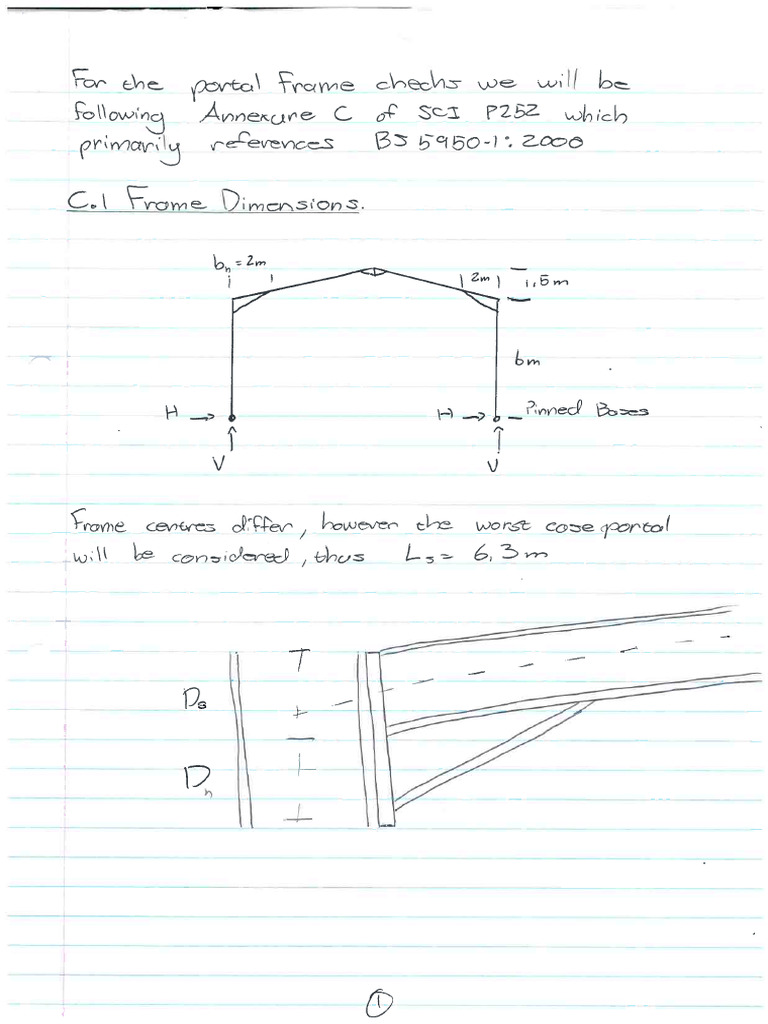 For the portal frame checks we will be
following Annexure C of SCI P252 which
primarily references BS 5950-1:2000
C.1 Frame Dimensions.
bh = 2m
2m
1,5m
6m
H
H
Pinned Bases
V
V
Frame centres differ, however the worst case portal
will be considered, thus Ls = 6,3m
Ds
Dh
1